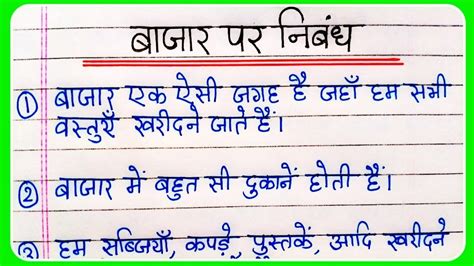 बाजार पर निबंध
① बाजार एक ऐसी जगह है जहाँ हम सभी
वस्तुएँ खरीदने जाते हैं।
② बाजार में बहुत सी दुकानें होती हैं।
③ हम सब्जियाँ, कपड़े, पुस्तकें, आदि खरीदने